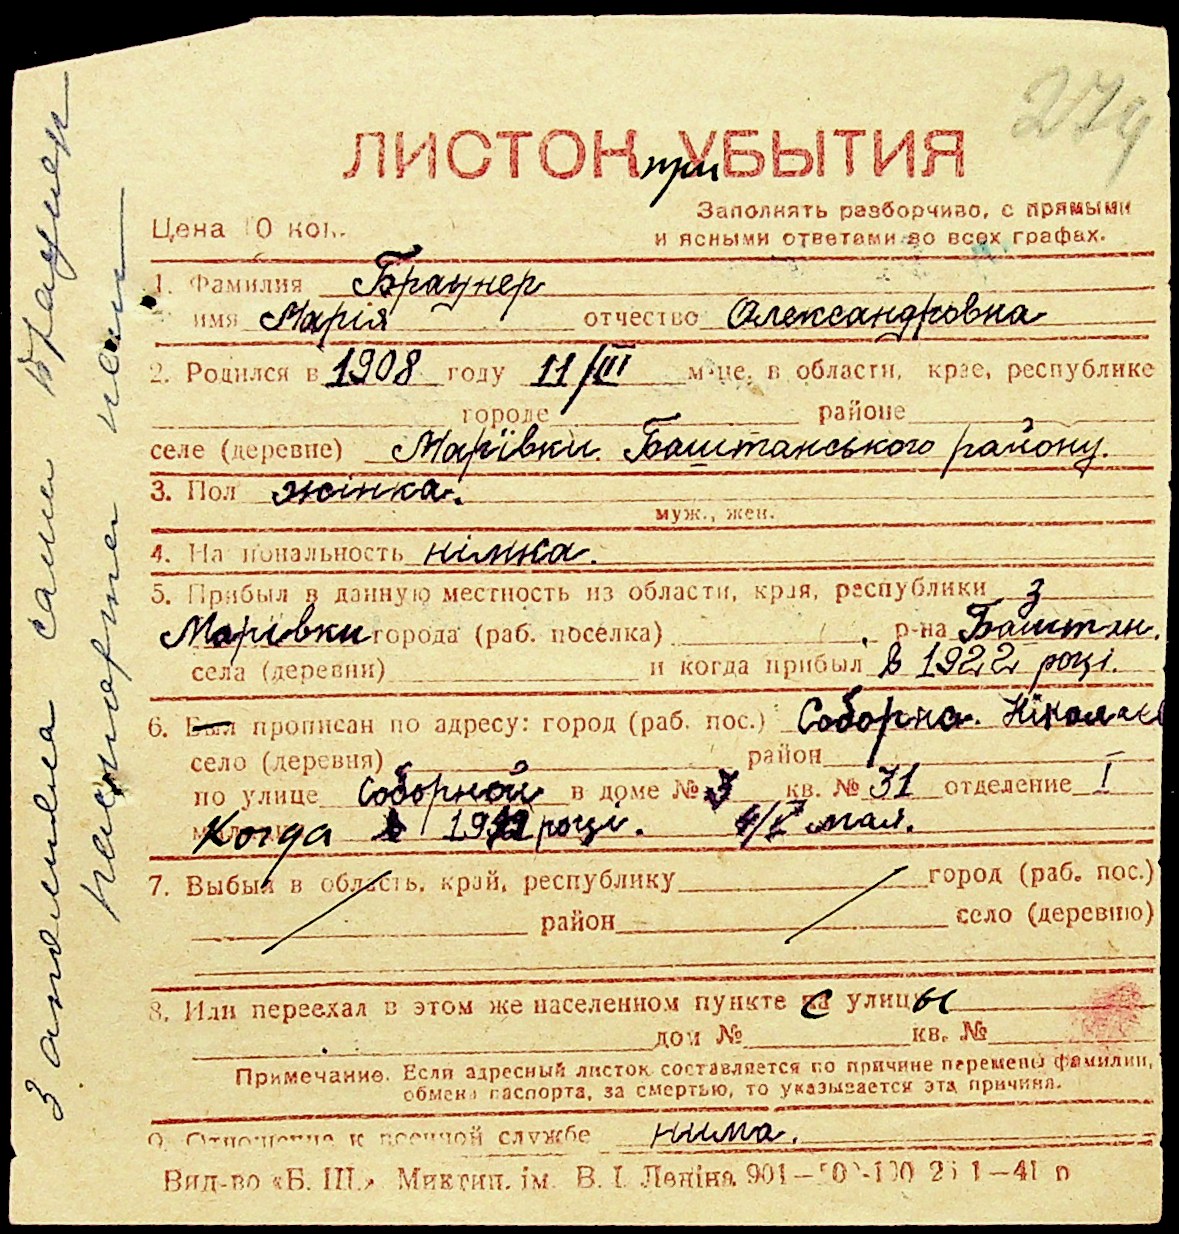 274
ЛИСТОК при УБЫТИЯ
Цена 10 коп.
Заполнять разборчиво, с прямыми
и ясными ответами во всех графах.
1. Фамилия Браунер
имя Марія отчество Олександровна
2. Родился в 1908 году 11/III м-це, в области, крае, республике
городе районе
селе (деревне) Марївки. Баштанського району.
3. Пол жінка.
муж., жен.
4. Национальность німка.
5. Прибыл в данную местность из области, края, республики з
Марівки города (раб. поселка) р-на Баштан.
села (деревни) и когда прибыл в 1922 році.
6. Был прописан по адресу: город (раб. пос.) Соборна. Ніколаев
село (деревня) район
по улице Соборной в доме № 3 кв. № 31 отделение I
Когда в році. 4/V мая.
7. Выбыл в область, край, республику город (раб. пос.)
район село (деревню)
8. Или переехал в этом же населенном пункте с улицы
дом № кв. №
Примечание. Если адресный листок составляется по причине перемены фамилии,
обмена паспорта, за смертью, то указывается эта причина.
9. Отношение к военной службе нима.
Вид-во «Б. Ш.» Миктип. ім. В. І. Леніна 901
З сами Браунер